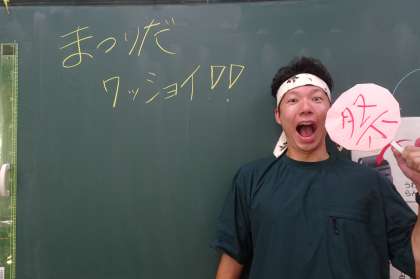 まつりだ
ワッショイ!!
祭